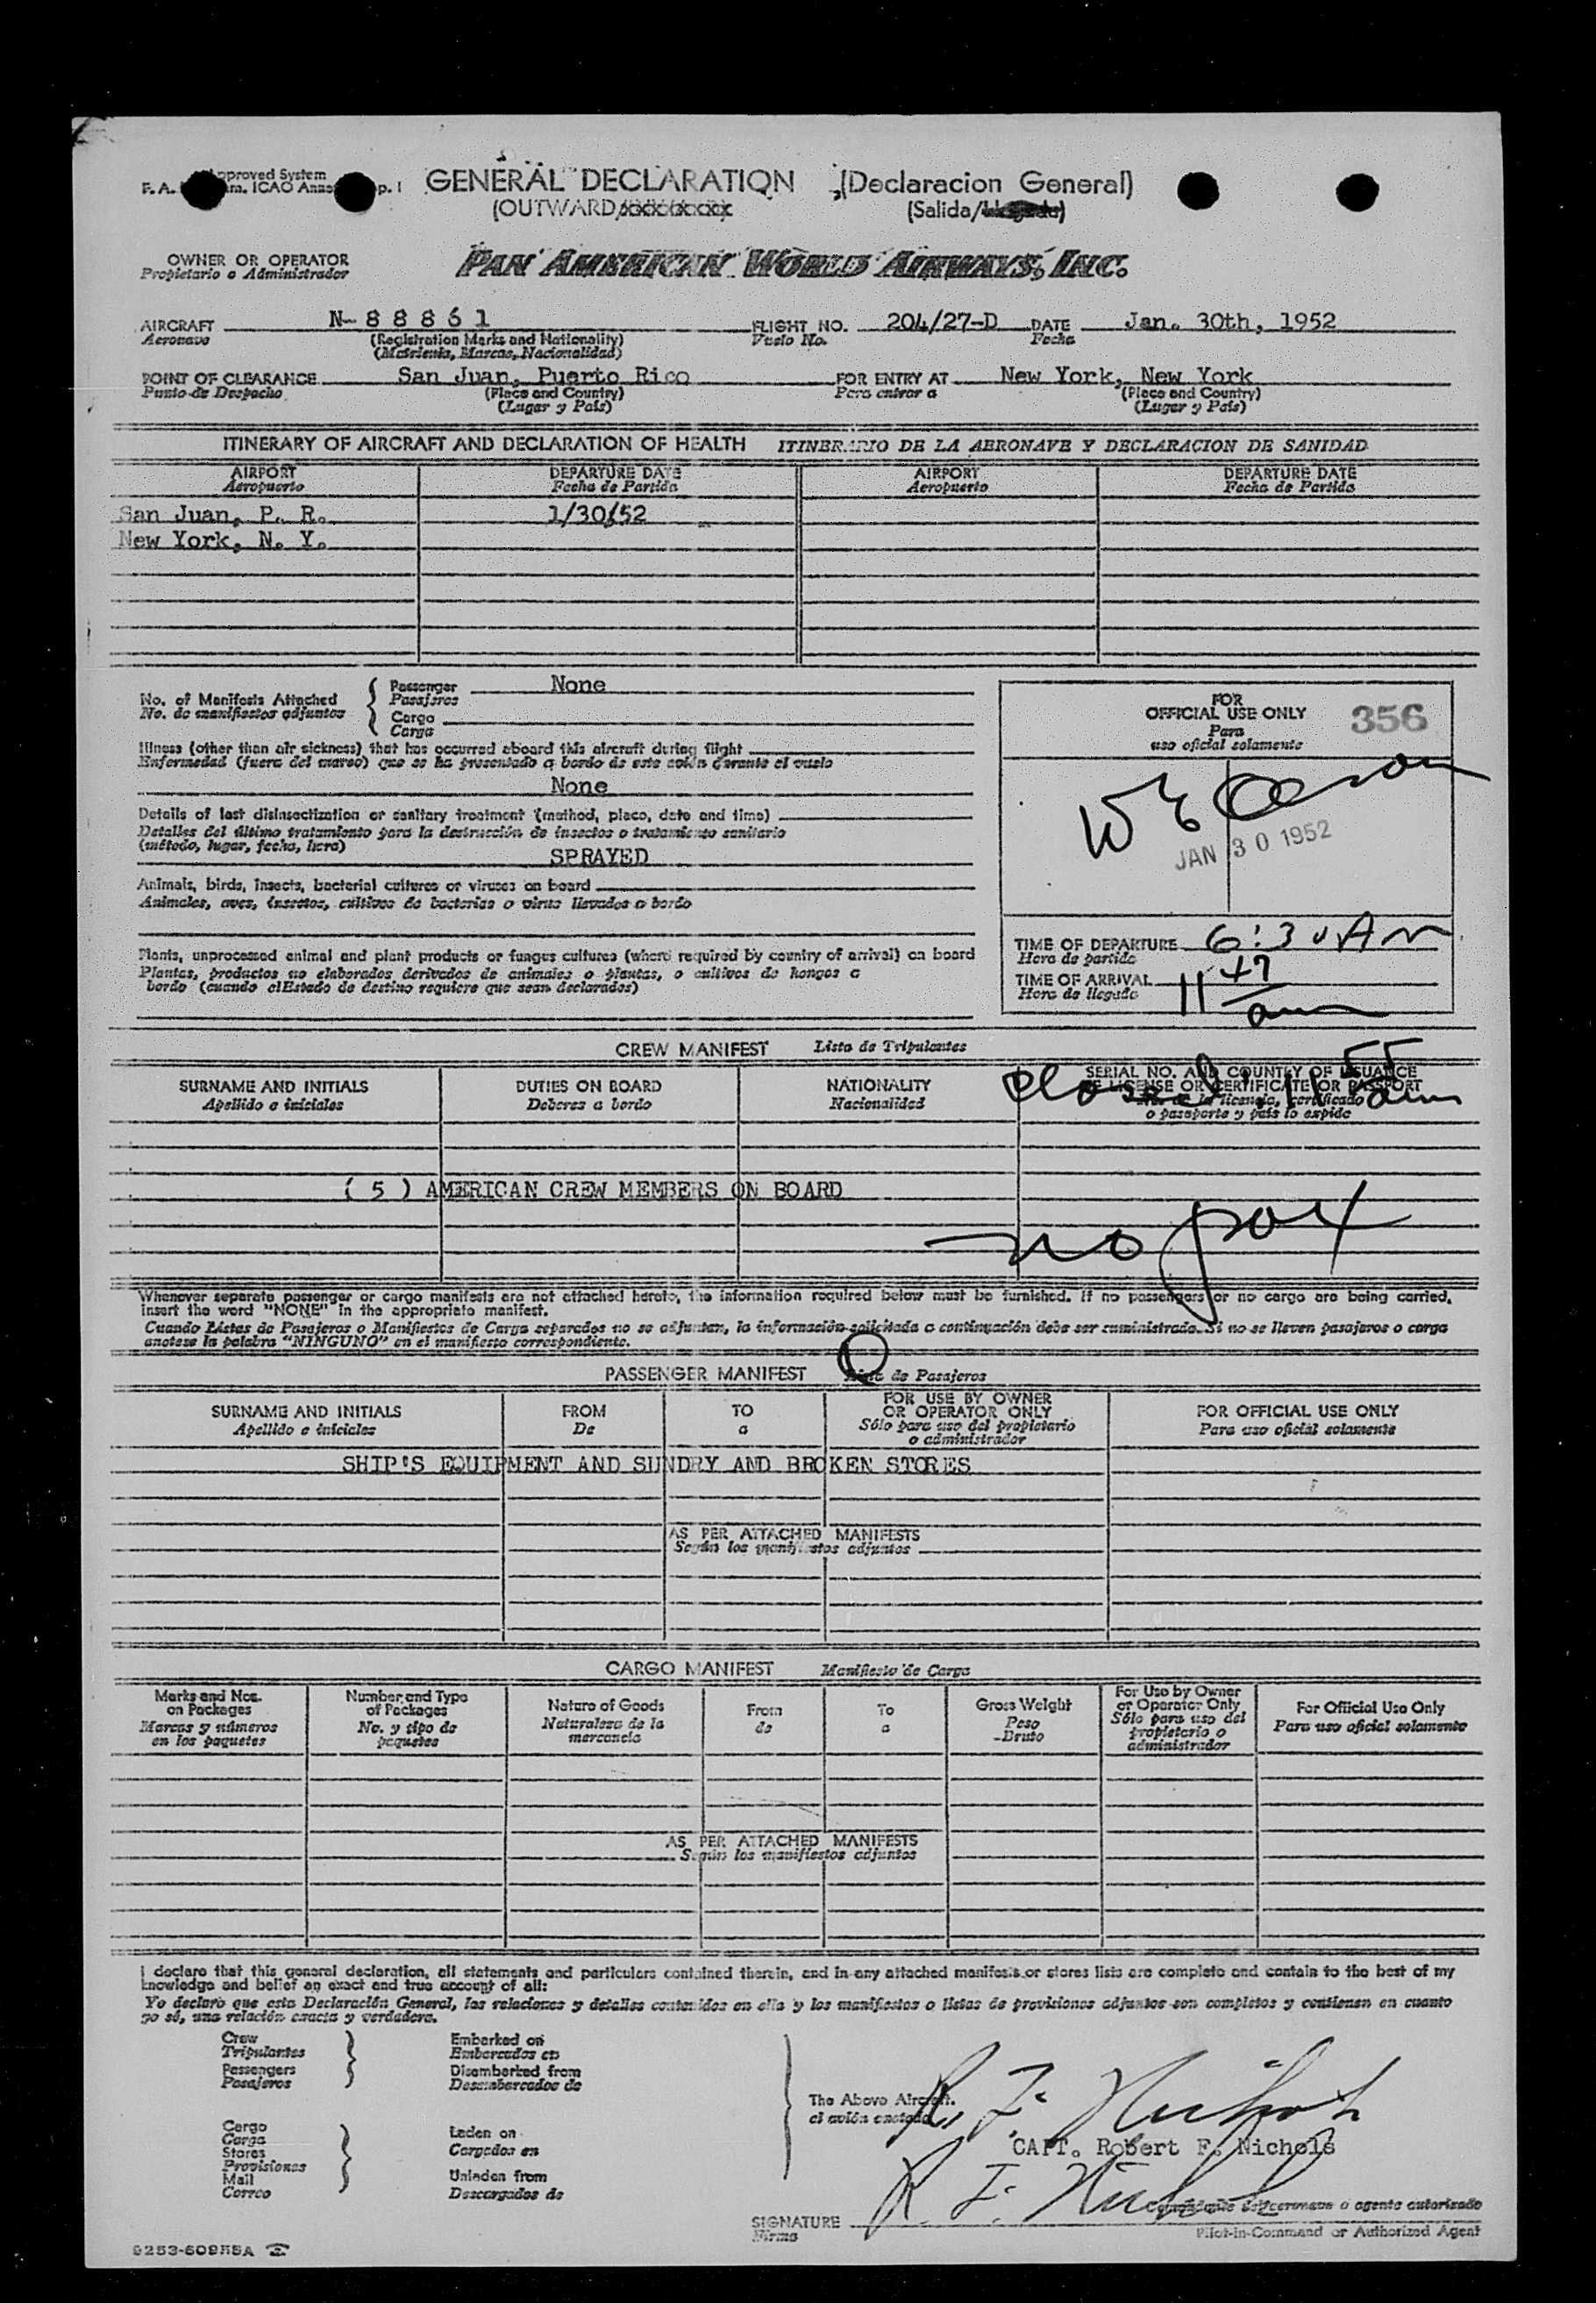 GENERAL DECLARATION (Declaracion General)
(OUTWARD/
(Salida/
OWNER OR OPERATOR
Propietario o Administrador
PAN AMERICAN WORLD AIRWAYS, INC.
AIRCRAFT N-88861 FLIGHT NO. 204/27-D DATE Jan. 30th, 1952
Aeronave (Registration Marks and Nationality) Vuelo No. Fecha
(Matricula, Marcas, Nacionalidad)
POINT OF CLEARANCE San Juan, Puerto Rico FOR ENTRY AT New York, New York
Punto de Despacho (Place and Country) Para entrar a (Place and Country)
(Lugar y País) (Lugar y País)
ITINERARY OF AIRCRAFT AND DECLARATION OF HEALTH ITINERARIO DE LA AERONAVE Y DECLARACION DE SANIDAD
AIRPORT DEPARTURE DATE AIRPORT DEPARTURE DATE
Aeropuerto Fecha de Partida Aeropuerto Fecha de Partida
San Juan, P. R. 1/30/52
New York, N. Y.
No. of Manifests Attached
No. de manifiestos adjuntos
Passenger None
Pasajeros
Cargo
Carga
Illness (other than air sickness) that has occurred aboard this aircraft during flight
Enfermedad (fuera del mareo) que se ha presentado a bordo de este avión durante el vuelo
None
Details of last disinsectization or sanitary treatment (method, place, date and time)
Detalles del último tratamiento para la destrucción de insectos o tratamiento sanitario
(método, lugar, fecha, hora)
SPRAYED
Animals, birds, insects, bacterial cultures or viruses on board
Animales, aves, insectos, cultivos de bacterias o virus llevados a bordo
Plants, unprocessed animal and plant products or fungus cultures (where required by country of arrival) on board
Plantas, productos no elaborados derivados de animales o plantas, o cultivos de hongos a
bordo (cuando el Estado de destino requiere que sean declarados)
FOR
OFFICIAL USE ONLY 356
Para
uso oficial solamente
JAN 30 1952
TIME OF DEPARTURE 6:30 AM
Hora de partida
TIME OF ARRIVAL 11 47 am
Hora de llegada
CREW MANIFEST Lista de Tripulantes
SURNAME AND INITIALS DUTIES ON BOARD NATIONALITY SERIAL NO. AND COUNTRY OF ISSUANCE
OF LICENSE OR CERTIFICATE OR PASSPORT
Apellido e iniciales Deberes a bordo Nacionalidad
No. de la licencia, certificado
o pasaporte y país lo expide
closed 11 55 am
( 5 ) AMERICAN CREW MEMBERS ON BOARD
no pax
Whenever separate passenger or cargo manifests are not attached hereto, the information required below must be furnished. If no passengers or no cargo are being carried,
insert the word "NONE" in the appropriate manifest.
Cuando Listas de Pasajeros o Manifiestos de Carga separados no se adjuntan, la información solicitada a continuación debe ser suministrada. Si no se lleven pasajeros o carga
anotese la palabra "NINGUNO" en el manifiesto correspondiente.
PASSENGER MANIFEST Lista de Pasajeros
SURNAME AND INITIALS FROM TO FOR USE BY OWNER OR OPERATOR ONLY FOR OFFICIAL USE ONLY
Apellido e iniciales De a Sólo para uso del propietario o administrador Para uso oficial solamente
SHIP'S EQUIPMENT AND SUNDRY AND BROKEN STORES
AS PER ATTACHED MANIFESTS
Según los manifiestos adjuntos
CARGO MANIFEST Manifiesto de Carga
Marks and Nos. on Packages Number and Type of Packages Nature of Goods From To Gross Weight For Use by Owner or Operator Only For Official Use Only
Marcas y números en los paquetes No. y tipo de paquetes Naturaleza de la mercancia de a Peso Bruto Sólo para uso del propietario o administrador Para uso oficial solamente
AS PER ATTACHED MANIFESTS
Según los manifiestos adjuntos
I declare that this general declaration, all statements and particulars contained therein, and in any attached manifests or stores lists are complete and contain to the best of my
knowledge and belief an exact and true account of all:
Yo declaro que esta Declaración General, las relaciones y detalles contenidos en ella y los manifiestos o listas de provisiones adjuntos son completos y contienen en cuanto
yo sé, una relación exacta y verdadera.
Crew Embarked on
Tripulantes Embarcados en
Passengers Disembarked from
Pasajeros Desembarcados de
The Above Aircraft.
el avión
Cargo Laden on
Carga Cargados en
Stores
Provisiones
Mail Unladen from
Correo Descargados de
R. F. Nichols
CAPT. Robert F. Nichols
R F. Nichols
SIGNATURE
Firma
aeronave o agente autorizado
Pilot-in-Command or Authorized Agent